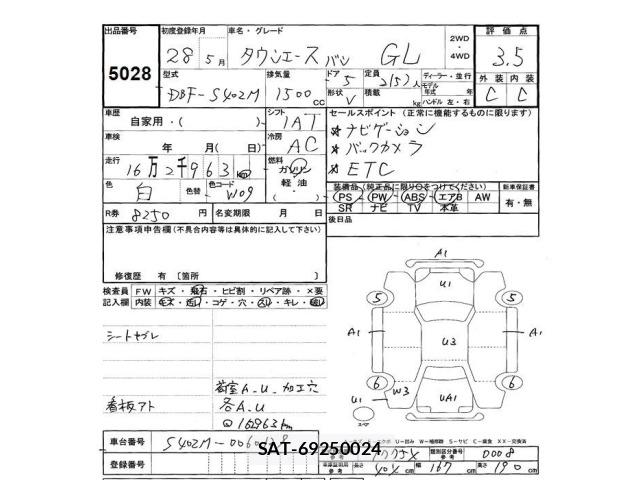 出品番号 初度登録年月 車名・グレード 2WD・4WD 評価点
5028 28年 5月 タウンエース バン GL 3.5
型式 排気量 ドア 5 定員 2(5)人 ディーラー・並行 外装 内装
DBF-S402M 1500cc 形状 V 積載 kg モデル年式 年 ハンドル 左・右 C C
車歴 自家用・( ) シフト IAT セールスポイント (正常に機能するものに限ります)
★ナビゲーション
車検 年 月( 日) 冷房 AC ★バックカメラ
走行 16万2千963km 燃料 ガソリン 軽油・( ) ★ETC
色 白 色替 色コード W09
装備品(純正品に限り○をつけてください) 新車保証書
PS PW ABS エアB AW 有・無
SR ナビ TV 本革
R券 8250円 名変期限 月 日 後日品
注意事項申告欄(不具合内容等は具体的に記入して下さい)
修復歴 有 〔箇所 〕
検査員 FW キズ・飛石・ヒビ割・リペア跡・×要
記入欄 内装 コゲ・穴・スレ・キレ・
A1
U1
5 5
A1 U3 A1
6 6
W3
UA1
U1
シートヤブレ
荷室A.U.加工穴
看板アト 各A.U
@162963km
車台番号 S402M-0060
SAT-69250024
登録番号
類別区分番号 0008
長さ 404cm 幅 167cm 高さ 190cm